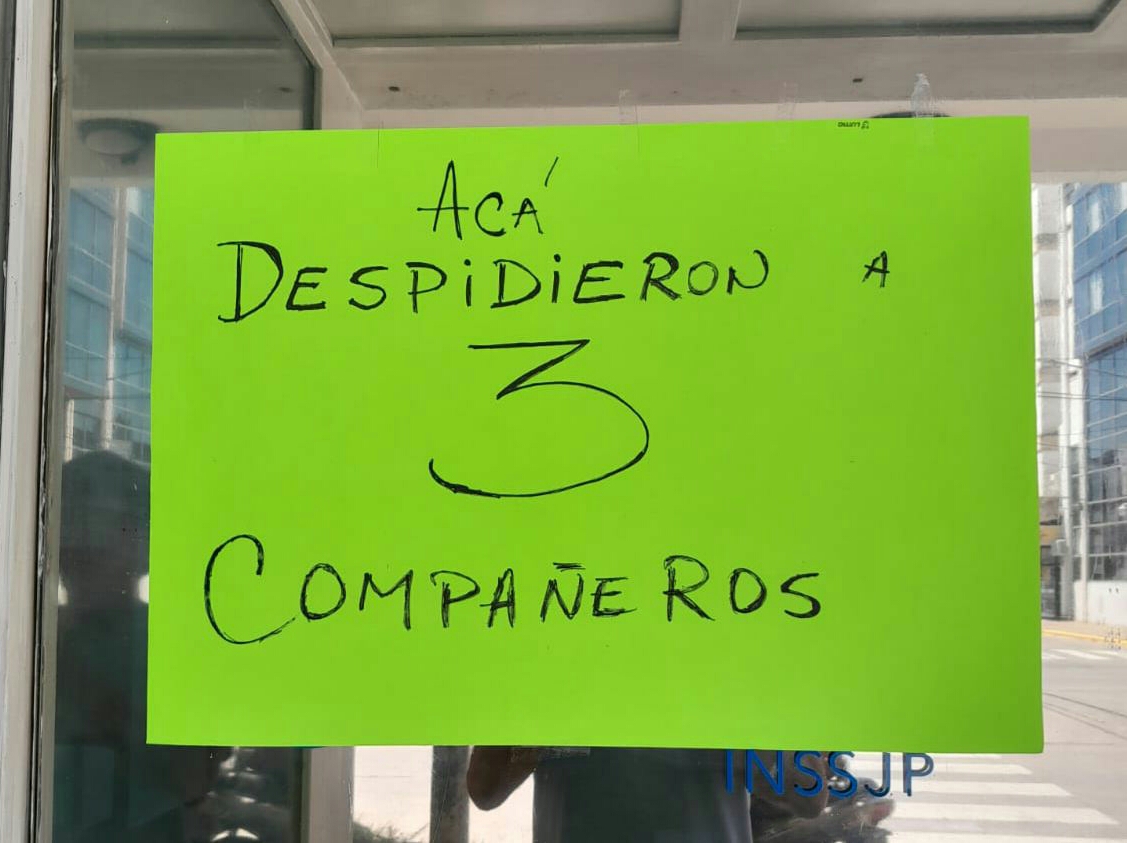 ACÁ
DESPiDiERON A
3
COMPAÑEROS
INSSJP